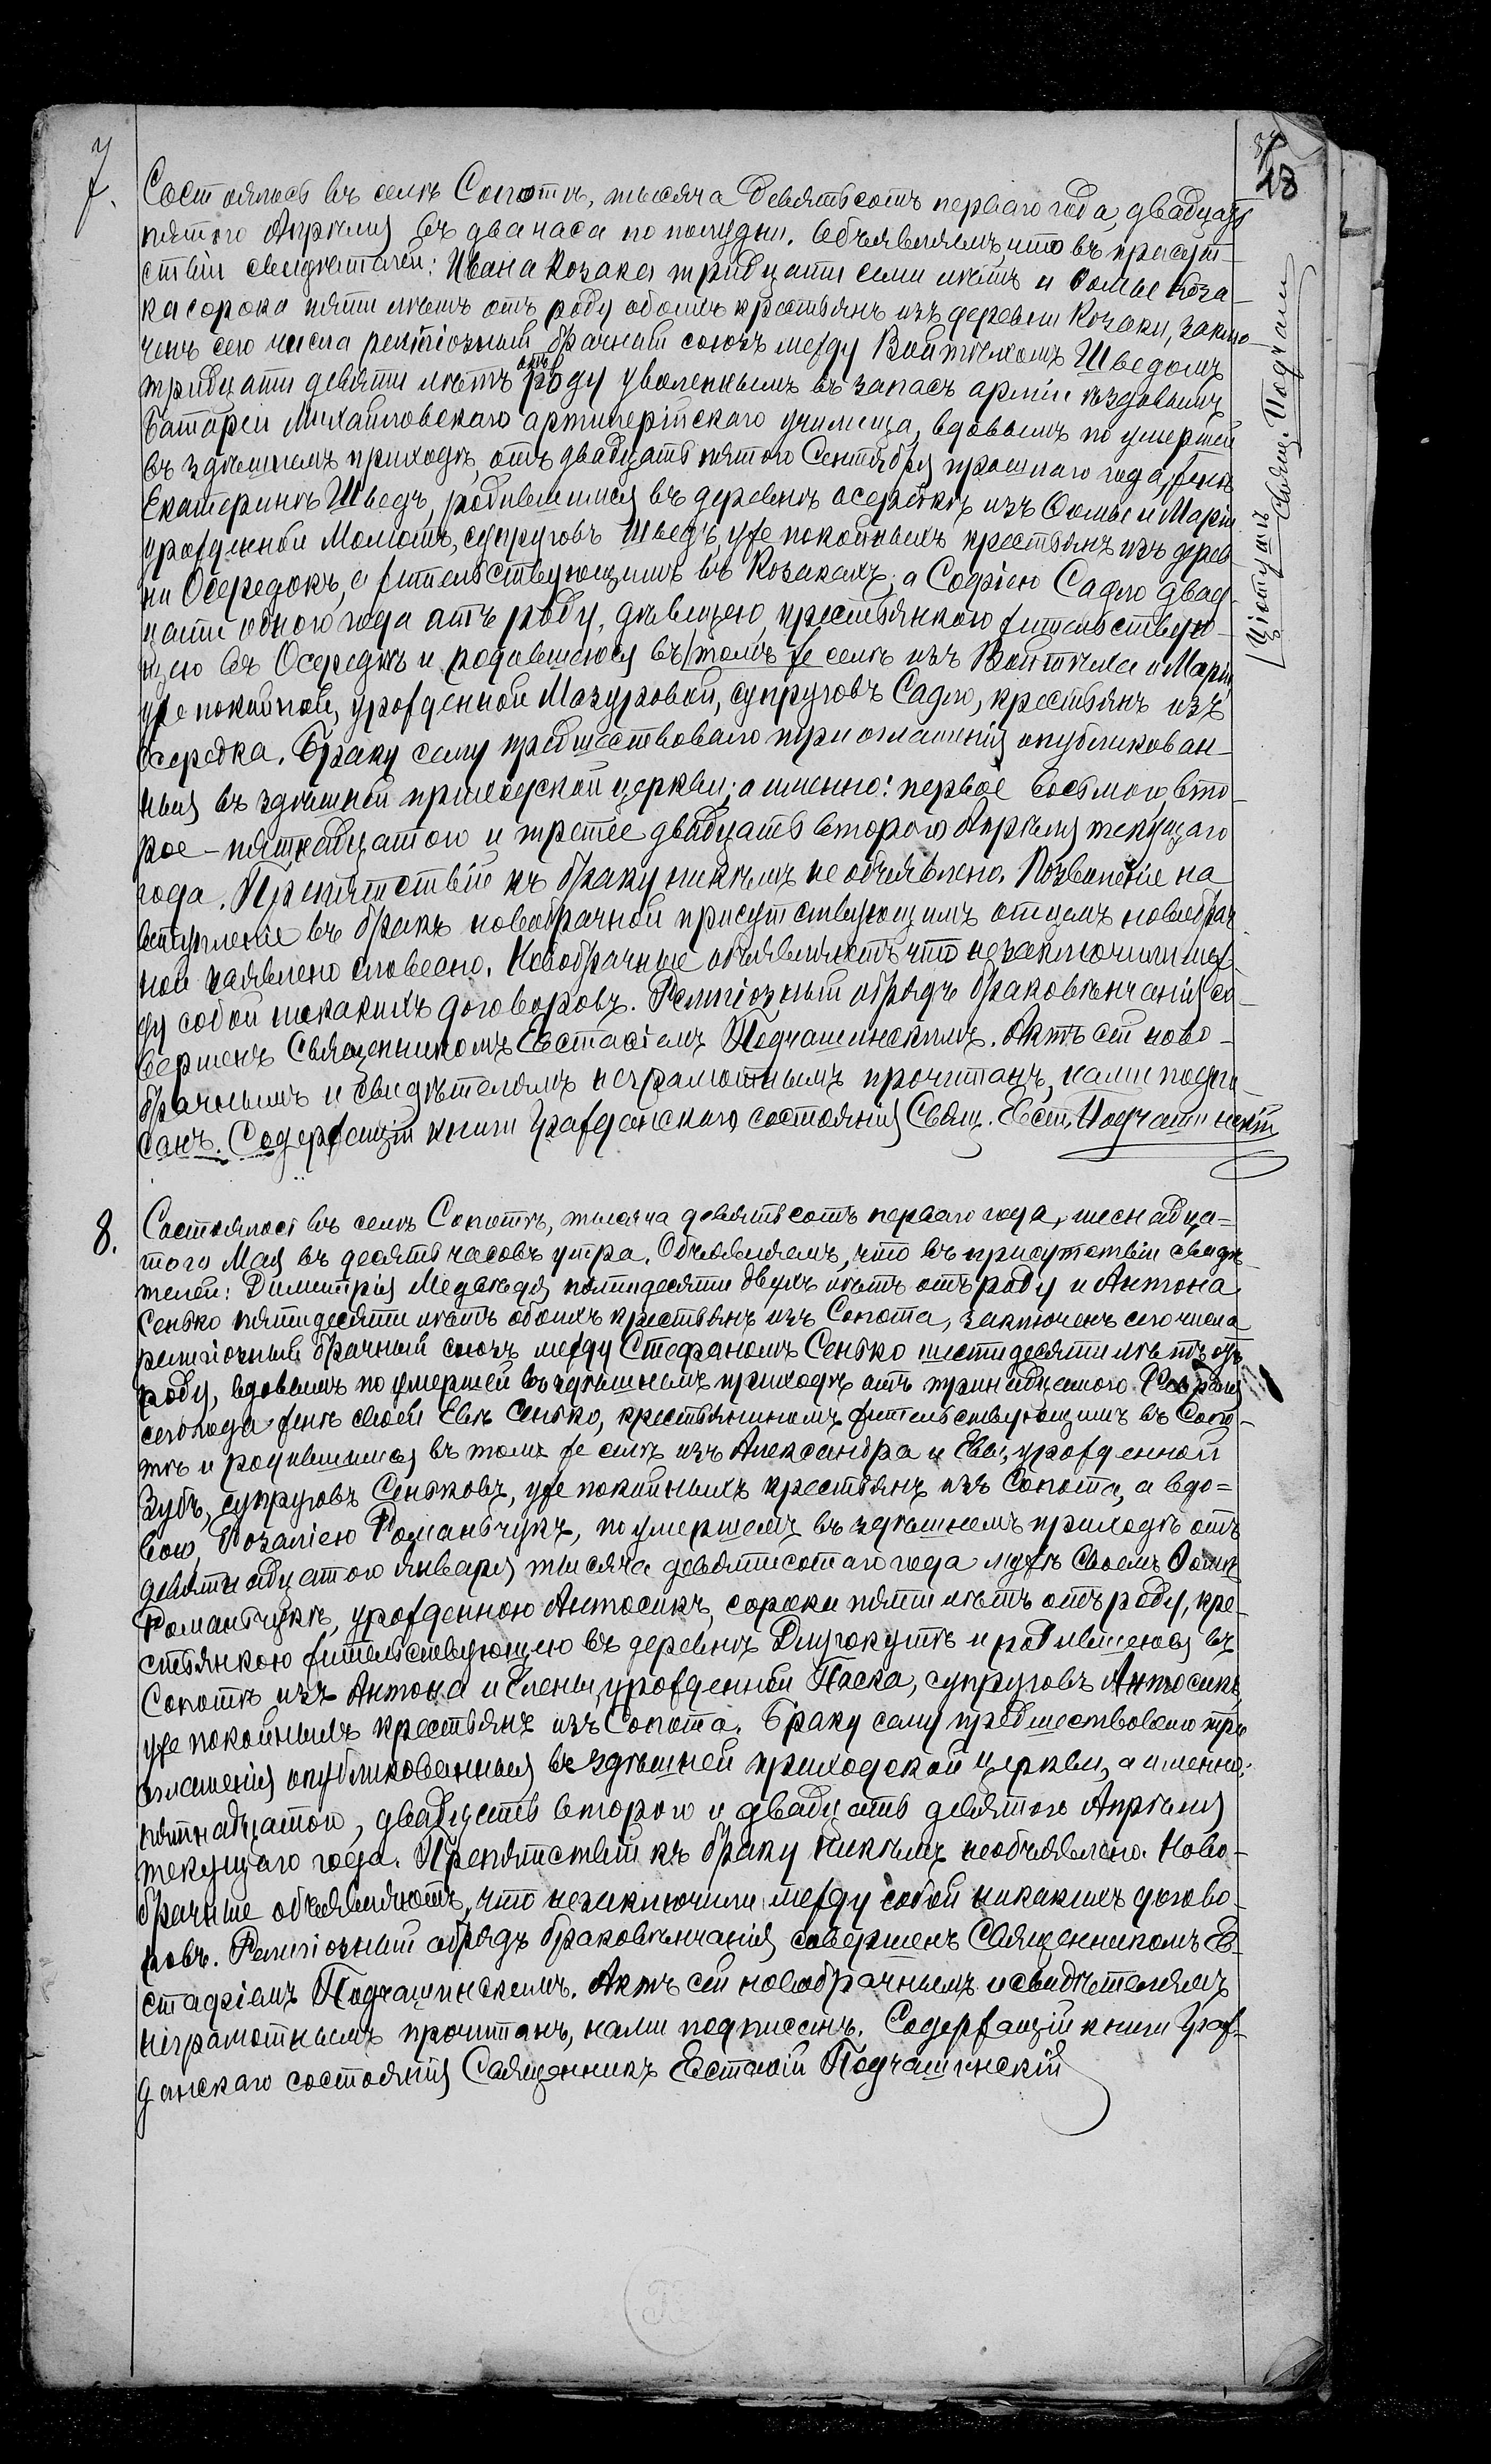 7.
18
Состоялось въ селѣ Сопотѣ, тысяча девятьсотъ перваго года, двадцать
пятого Апрѣля въ два часа по полудни. Объявляемъ что въ присут-
ствіи свидѣтелей: Ивана Козака тридцати семи лѣтъ и Ѳомы Коза-
ка сорока пяти лѣтъ отъ роду обоихъ крестьянъ изъ деревни Козаки, заклю
ченъ сего числа религіозный брачный союзъ между Войтѣхомъ Шведомъ
тридцати девяти лѣтъ отъ роду уволеннымъ въ запасъ арміи ѣздовымъ
батареи Михайловскаго артилерійскаго училища, вдовымъ по умершей
въ здѣшнемъ приходѣ, отъ двадцать пятого Сентября прошлаго года, женѣ
Екатеринѣ Шведъ, родившимся въ деревнѣ Осередкѣ изъ Ѳомы и Маріи
урожденной Молотъ, супруговъ Шведъ, уже покойныхъ крестьянъ изъ дерев
ни Осередокъ, а жительствующимъ въ Козакахъ, а Софіею Садло двад-
цати одного года отъ роду, дѣвицею, крестьянкою жительствую-
щею въ Осередкѣ и родившеюся въ томъ же селѣ изъ Войтѣха и Маріи,
уже покойной, урожденной Мазуровой, супруговъ Садло, крестьянъ изъ
Осередка. Браку сему предшествовало три оглашенія опубликован-
ныя въ здѣшней приходской церкви, а именно: первое восьмого, вто-
рое - пятнадцатого и третее двадцать второго Апрѣля текущаго
года. Препятствіе къ браку никѣмъ не объявлено. Позволеніе на
вступленіе въ бракъ новобрачной присутствующимъ отцемъ новобрач
ной заявлено словесно. Новобрачные объявляютъ что не заключили меж-
ду собой никакихъ договоровъ. Религіозный обрядъ браковѣнчанія со-
вершенъ Священникомъ Евстафіемъ Подчашинскимъ. Актъ сей ново-
брачнымъ и свидѣтелямъ неграмотнымъ прочитанъ, нами подпи-
санъ. Содержащій книги Гражданскаго состоянія Свящ. Евст. Подчашинскій
Свящ. Подчаши
8.
Состоялось въ селѣ Сопотѣ, тысяча девятьсотъ перваго года, шеснадца-
того Мая въ десять часовъ утра. Объявляемъ, что въ присутствіи свидѣ
телей: Димитрія Медвѣдя, пятидесяти двухъ лѣтъ отъ роду и Антона
Сенько пятидесяти лѣтъ обоихъ крестьянъ изъ Сопота, заключенъ сего числа
религіозный брачный союзъ между Стефаномъ Сенько шестидесяти лѣтъ отъ
роду, вдовымъ по умершей въ здѣшнемъ приходѣ отъ тринадцатого Февраля
сего года женѣ своей Евѣ Сенько, крестьяниномъ жительствующимъ въ Сопо-
тѣ и родившимся въ томъ же селѣ изъ Александра и Евы, урожденной
Зубъ, супруговъ Сеньковъ, уже покойныхъ крестьянъ изъ Сопота, а вдо-
вою, Розаліею Романьчукъ, по умершемъ въ здѣшнемъ приходѣ отъ
девятнадцатого Января тысяча девятисотаго года мужѣ своемъ Ѳомѣ
Романьчукѣ, урожденною Антосикъ, сорока пяти лѣтъ отъ роду, кре-
стьянкою жительствующею въ деревнѣ Длугокутѣ и родившеюся въ
Сопотѣ изъ Антона и Елены, урожденной Паска, супруговъ Антосикъ,
уже покойныхъ крестьянъ изъ Сопота. Браку сему предшествовало три
оглашенія опубликованныя въ здѣшней приходской церкви, а именно:
пятнадцатого, двадцать второго и двадцать девятого Апрѣля
текущаго года. Препятствій къ браку никѣмъ необъявлено. Ново-
брачные объявляютъ, что незаключили между собой никакихъ догово-
ровъ. Религіозный обрядъ браковѣнчанія совершенъ Священникомъ Ев-
стафіемъ Подчашинскимъ. Актъ сей новобрачнымъ и свидѣтелямъ
неграмотнымъ прочитанъ, нами подписанъ. Содержащій книги Граж-
данскаго состоянія Священникъ Евстафій Подчашинскій